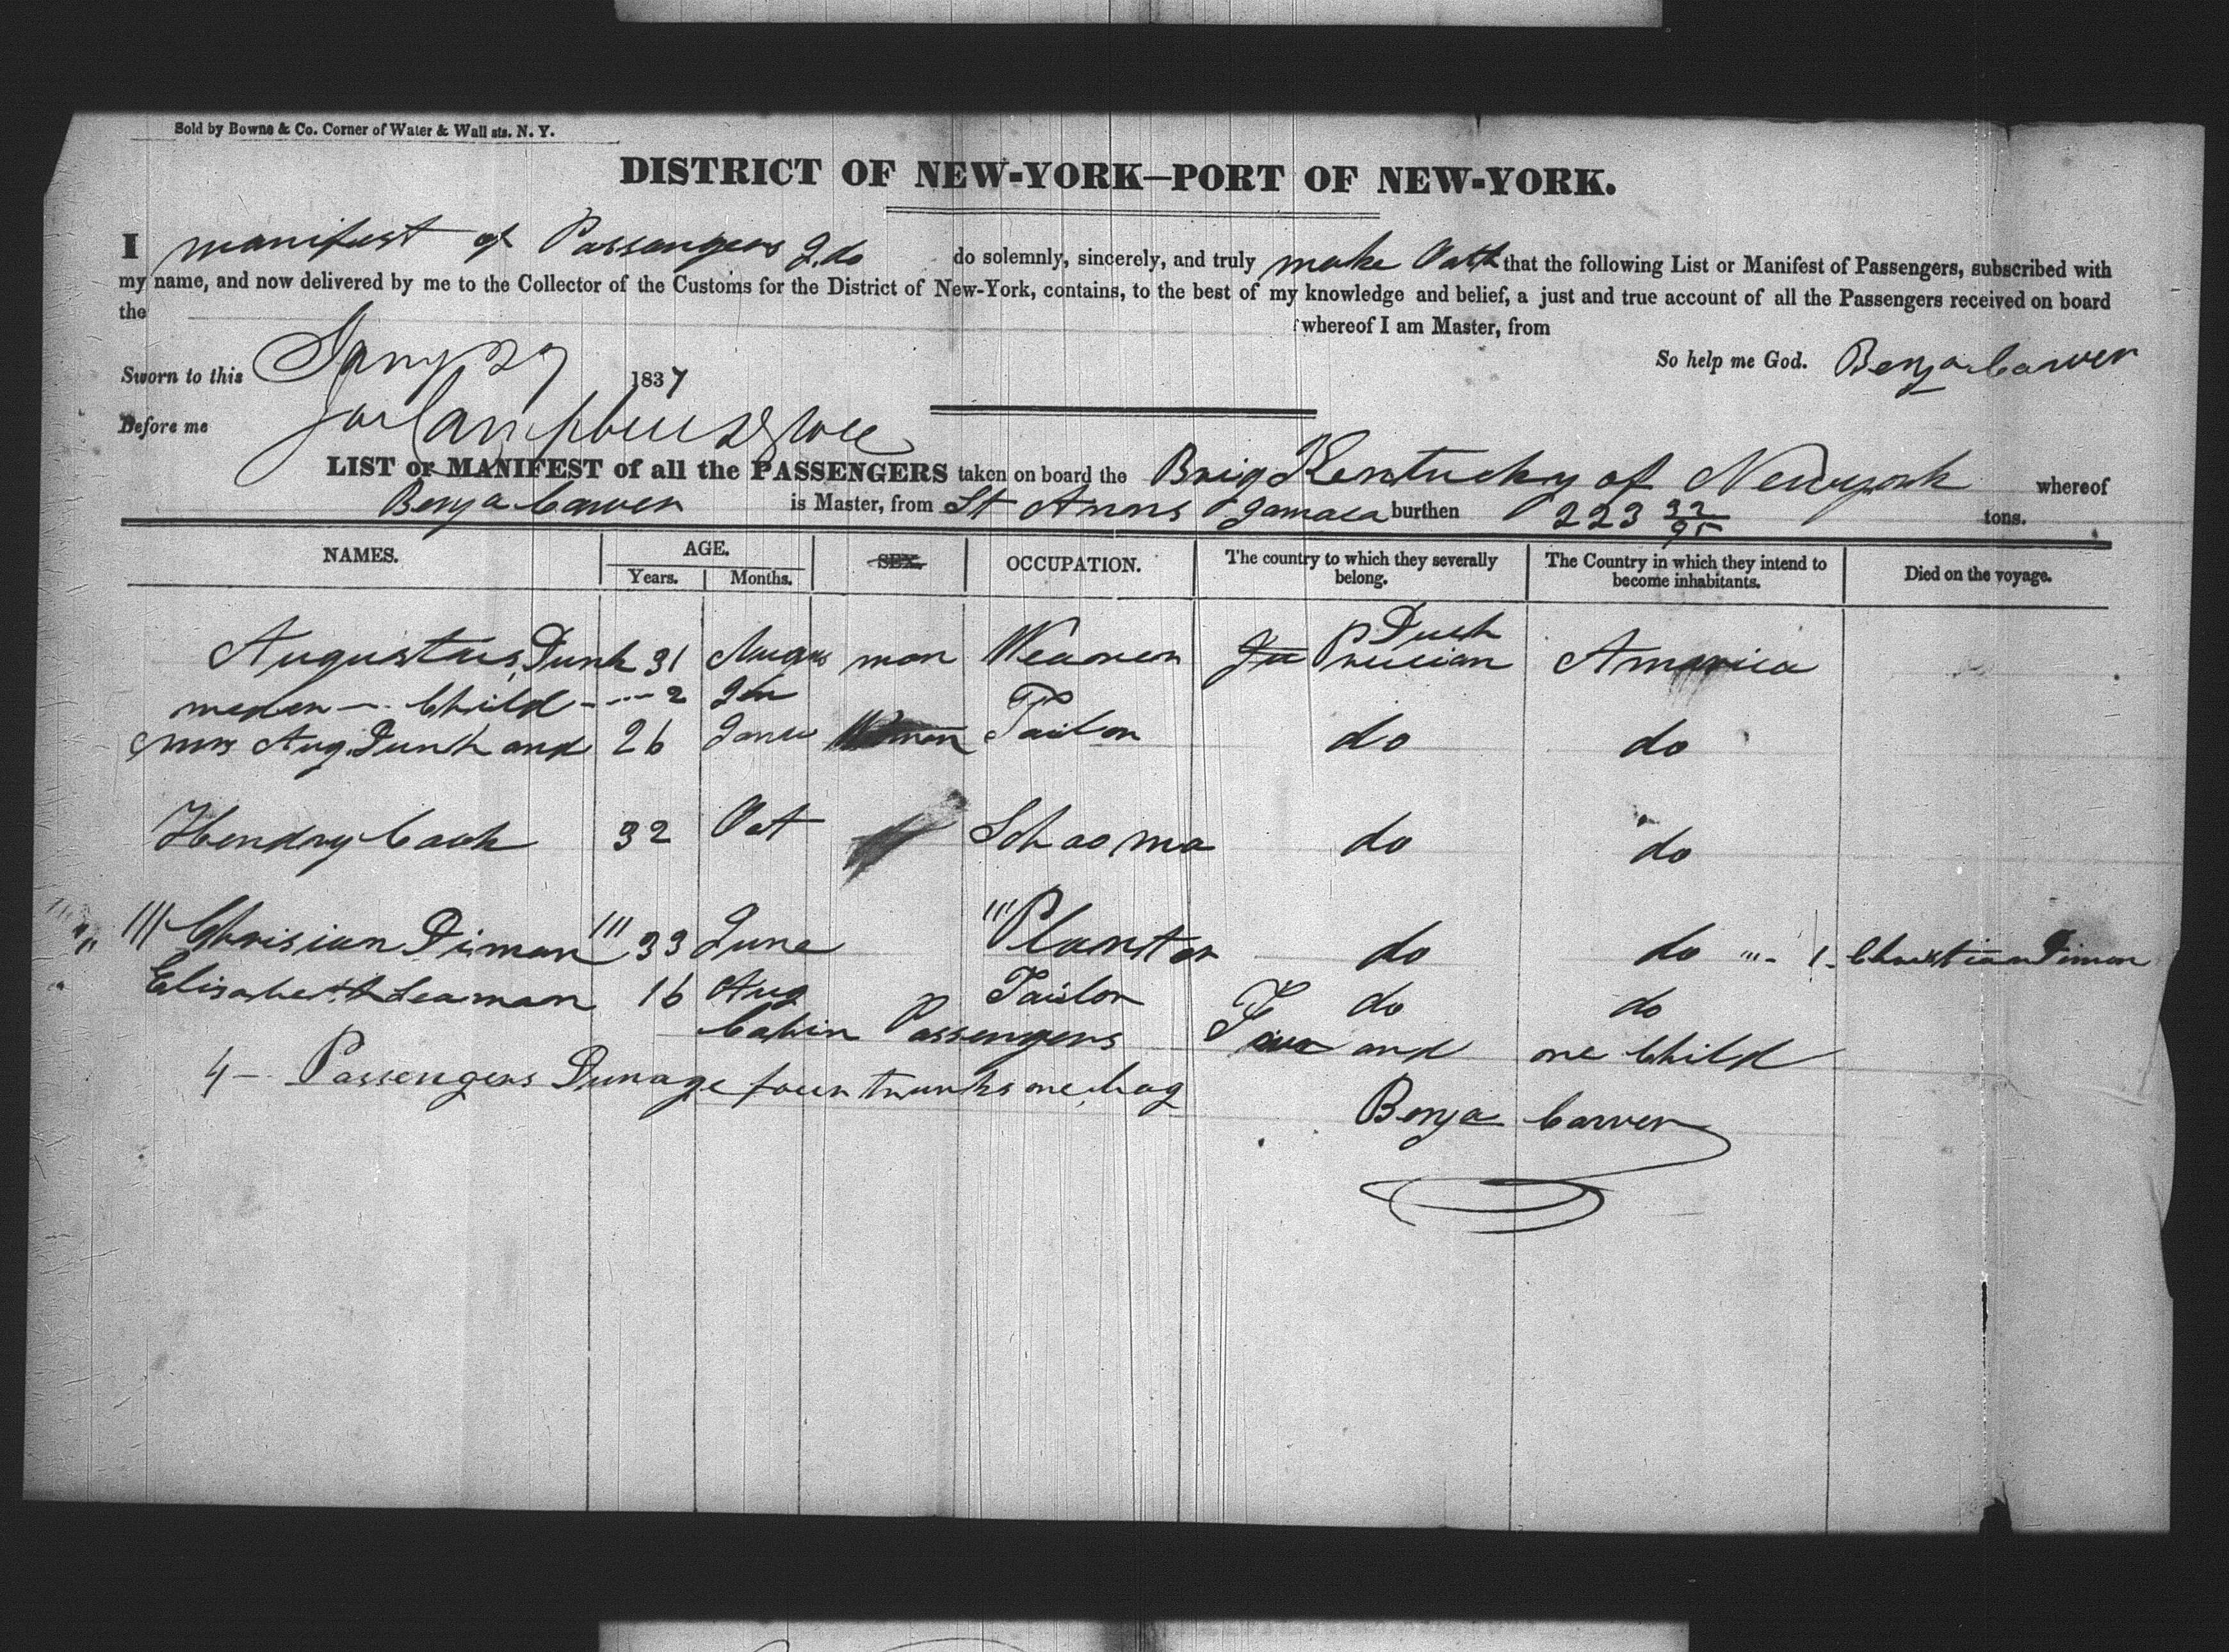 Sold by Bowne & Co. Corner of Water & Wall sts. N. Y.
DISTRICT OF NEW-YORK—PORT OF NEW-YORK.
I manifest of Passengers I do do solemnly, sincerely, and truly make Oath that the following List or Manifest of Passengers, subscribed with
my name, and now delivered by me to the Collector of the Customs for the District of New-York, contains, to the best of my knowledge and belief, a just and true account of all the Passengers received on board
the whereof I am Master, from
So help me God. Benja Carver
Sworn to this Jany 29 1837
Before me
LIST or MANIFEST of all the PASSENGERS taken on board the Brig Kentucky of Newyork whereof
Benja Carver is Master, from St Anns Jamaca burthen 223 32/95 tons.
NAMES. AGE. SEX. OCCUPATION. The country to which they severally belong. The Country in which they intend to become inhabitants. Died on the voyage.
Years. Months.
Duch
Augustus Dunk 31 man Weaver Prucian America
Child 2
Mrs Aug Dunk and 26 Woman Tailor do do
Hendry Cook 32 Oct do do
Chrisian Diman 33 June Planter do do 1 Christian Dimon
Elisabett Leaman 16 Aug Tailor do do
Cabin Passengers and one Child
4 - Passengers Dunage four trunks one bag
Benja Carver